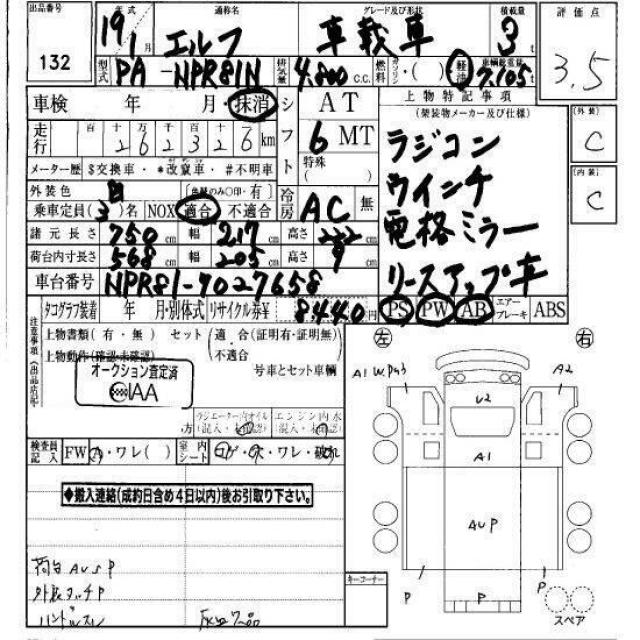 出品番号 年式 通称名 グレード及び形状 積載量 評価点
132 19年1月 エルフ 車載車 3t 3.5
型式 PA-NPR81N 排気量 4.800 C.C. 燃料 ガソリン・( ) 軽油 車輌総重量 7.105t
車検 年 月・抹消 シフト AT 上物特記事項 (外装)
(架装物メーカー及び仕様) C
走行 百 十 万 千 百 十 6 MT ラジコン
2 6 2 3 2 6 km 特殊 ( )
メーター歴 $交換車・*改竄車・#不明車 ウインチ (内装)
外装色 白 (色替のみ○印・有) 冷房 AC 無 C
乗車定員(3)名 NOX 適合 不適合 電格ミラー
諸元長さ 750cm 幅 217cm 高さ 222cm
荷台内寸長さ 568cm 幅 205cm 高さ 9cm リースアップ車
車台番号 NPR81-7027658
タコグラフ装着 年 月・別体式 リサイクル券¥ 8440円 PS PW AB エアーブレーキ ABS
注意事項(出品店記入)
上物書類(有・無) セット(適合(証明有・証明無)・不適合)
上物動作(確認・未確認) 号車とセット車輌
左 右
オークション査定済
IAA
A1 W P43 A2
U2
ラジエーター内オイル エンジン内水
方(混入・未確認) (混入・未確認)
検査員記入 FW A・ワレ( ) 室内シート コゲ・穴・ワレ・破れ
A1
◆搬入連絡(成約日含め4日以内)後お引取り下さい。
AUP
荷台 AUSP
外装タッチP
ハンドルスレ
キーコーナー
P P P
スペア